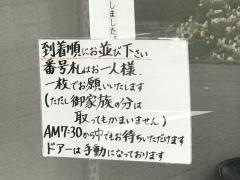 しました。
到着順にお並び下さい
番号札はお一人様、
一枚でお願いいたします
(ただし御家族の分は
取ってもかまいません)
AM7:30から中でもお待ちいただけます
ドアーは手動になっております